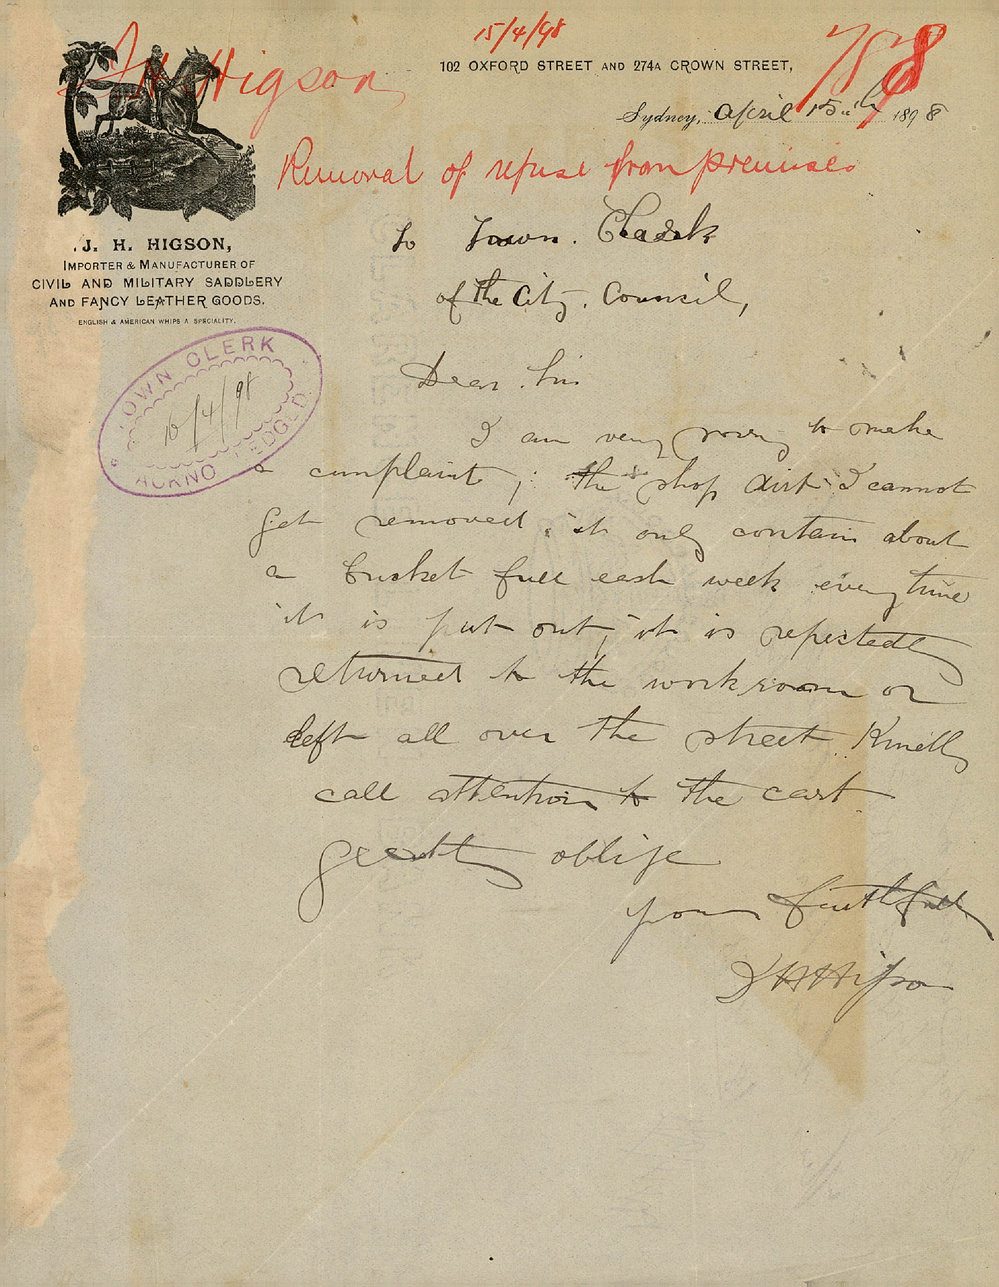 15/4/98
J H Higson
787
102 OXFORD STREET AND 274A CROWN STREET,
Sydney, April 15th 1898
Removal of refuse from premises
J. H. HIGSON,
IMPORTER & MANUFACTURER OF
CIVIL AND MILITARY SADDLERY
AND FANCY LEATHER GOODS.
ENGLISH & AMERICAN WHIPS A SPECIALITY.
To Town. Clerk
of the City. Council,
TOWN CLERK
16/4/98
ACKNOWLEDGED
Dear Sir
I am very sorry to make
a complaint; the shop dirt I cannot
get removed it only contain about
a bucket full each week every time
it is put out, it is repeatedly
returned to the workroom or
left all over the street. Kindly
call attention to the cart
greatly oblige
yours faithfully
J H Higson